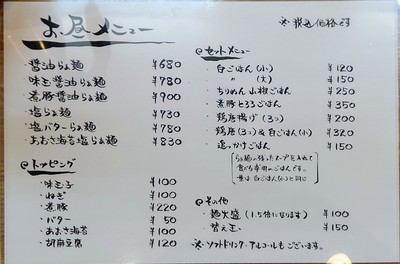 お昼メニュー
※税込価格です
・醤油らぁ麺 ¥680
・味玉醤油らぁ麺 ¥780
・煮豚醤油らぁ麺 ¥900
・塩らぁ麺 ¥730
・塩バターらぁ麺 ¥780
・あおさ海苔塩らぁ麺 ¥830
@トッピング
・味玉子 ¥100
・ねぎ ¥100
・煮豚 ¥220
・バター ¥50
・あおさ海苔 ¥100
・胡麻豆腐 ¥120
@セットメニュー
・白ごはん (小) ¥120
・〃 (大) ¥150
・ちりめん山椒ごはん ¥250
・煮豚とろろごはん ¥350
・鶏唐揚げ (2コ) ¥200
・鶏唐 (2コ) & 白ごはん (小) ¥320
・追っかけごはん ¥150
らぁ麺の残ったスープを入れて
食べる専用のごはんです。
量は白ごはん(小)と同じ
@その他
・麺大盛 (1.5倍になります) ¥100
・替え玉 ¥150
・※ソフトドリンク・アルコールもございます。